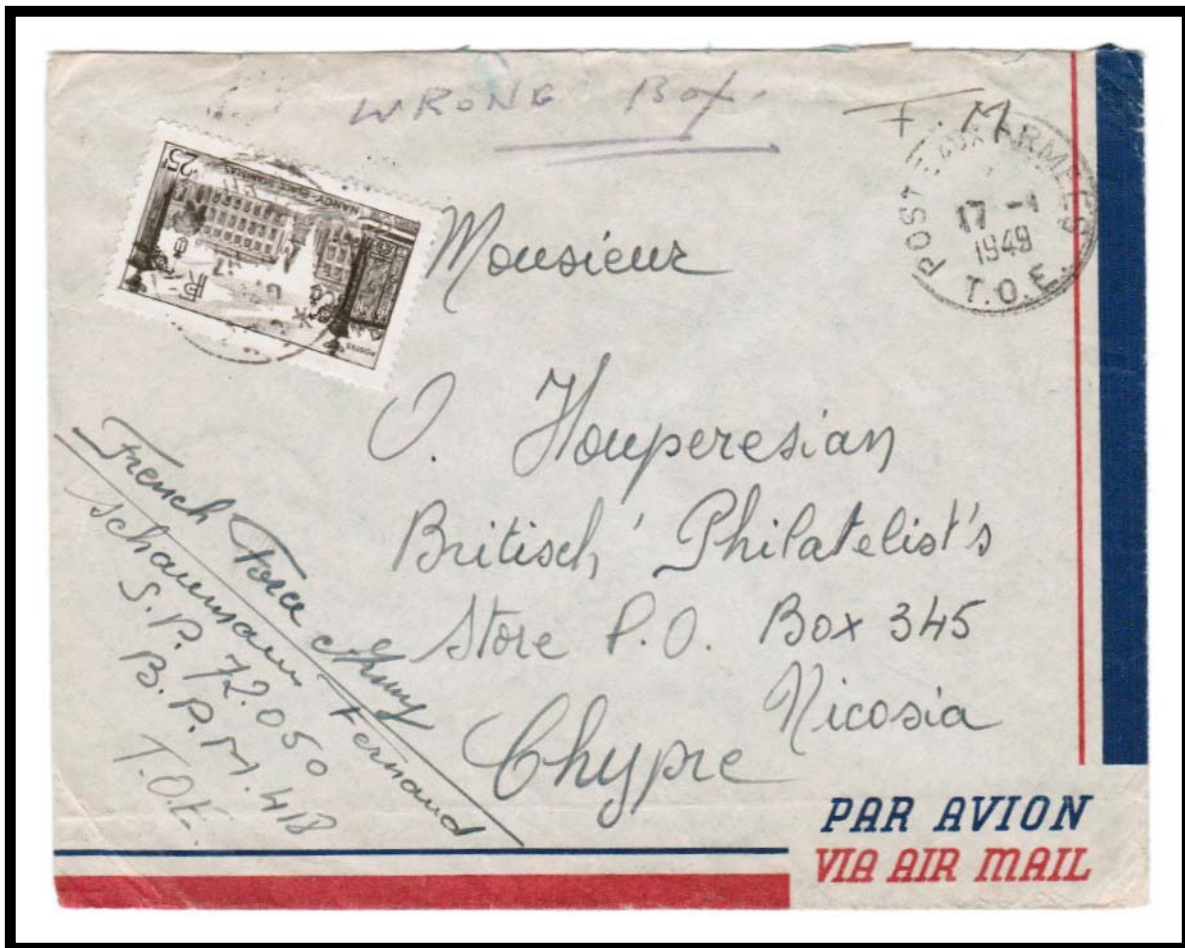 WRONG Box.
F. M
POSTE AUX ARMEES
17 -1
1949
T.O.E.
25F
NANCY-PLACE STANISLAS
RF
POSTES
Monsieur
O. Houperesian
Britisch' Philatelist's
Store P.O. Box 345
Nicosia
Chypre
French Force Army
Fernand
S.P. 72.050
B.P.M. 418
T.O.E.
PAR AVION
VIA AIR MAIL